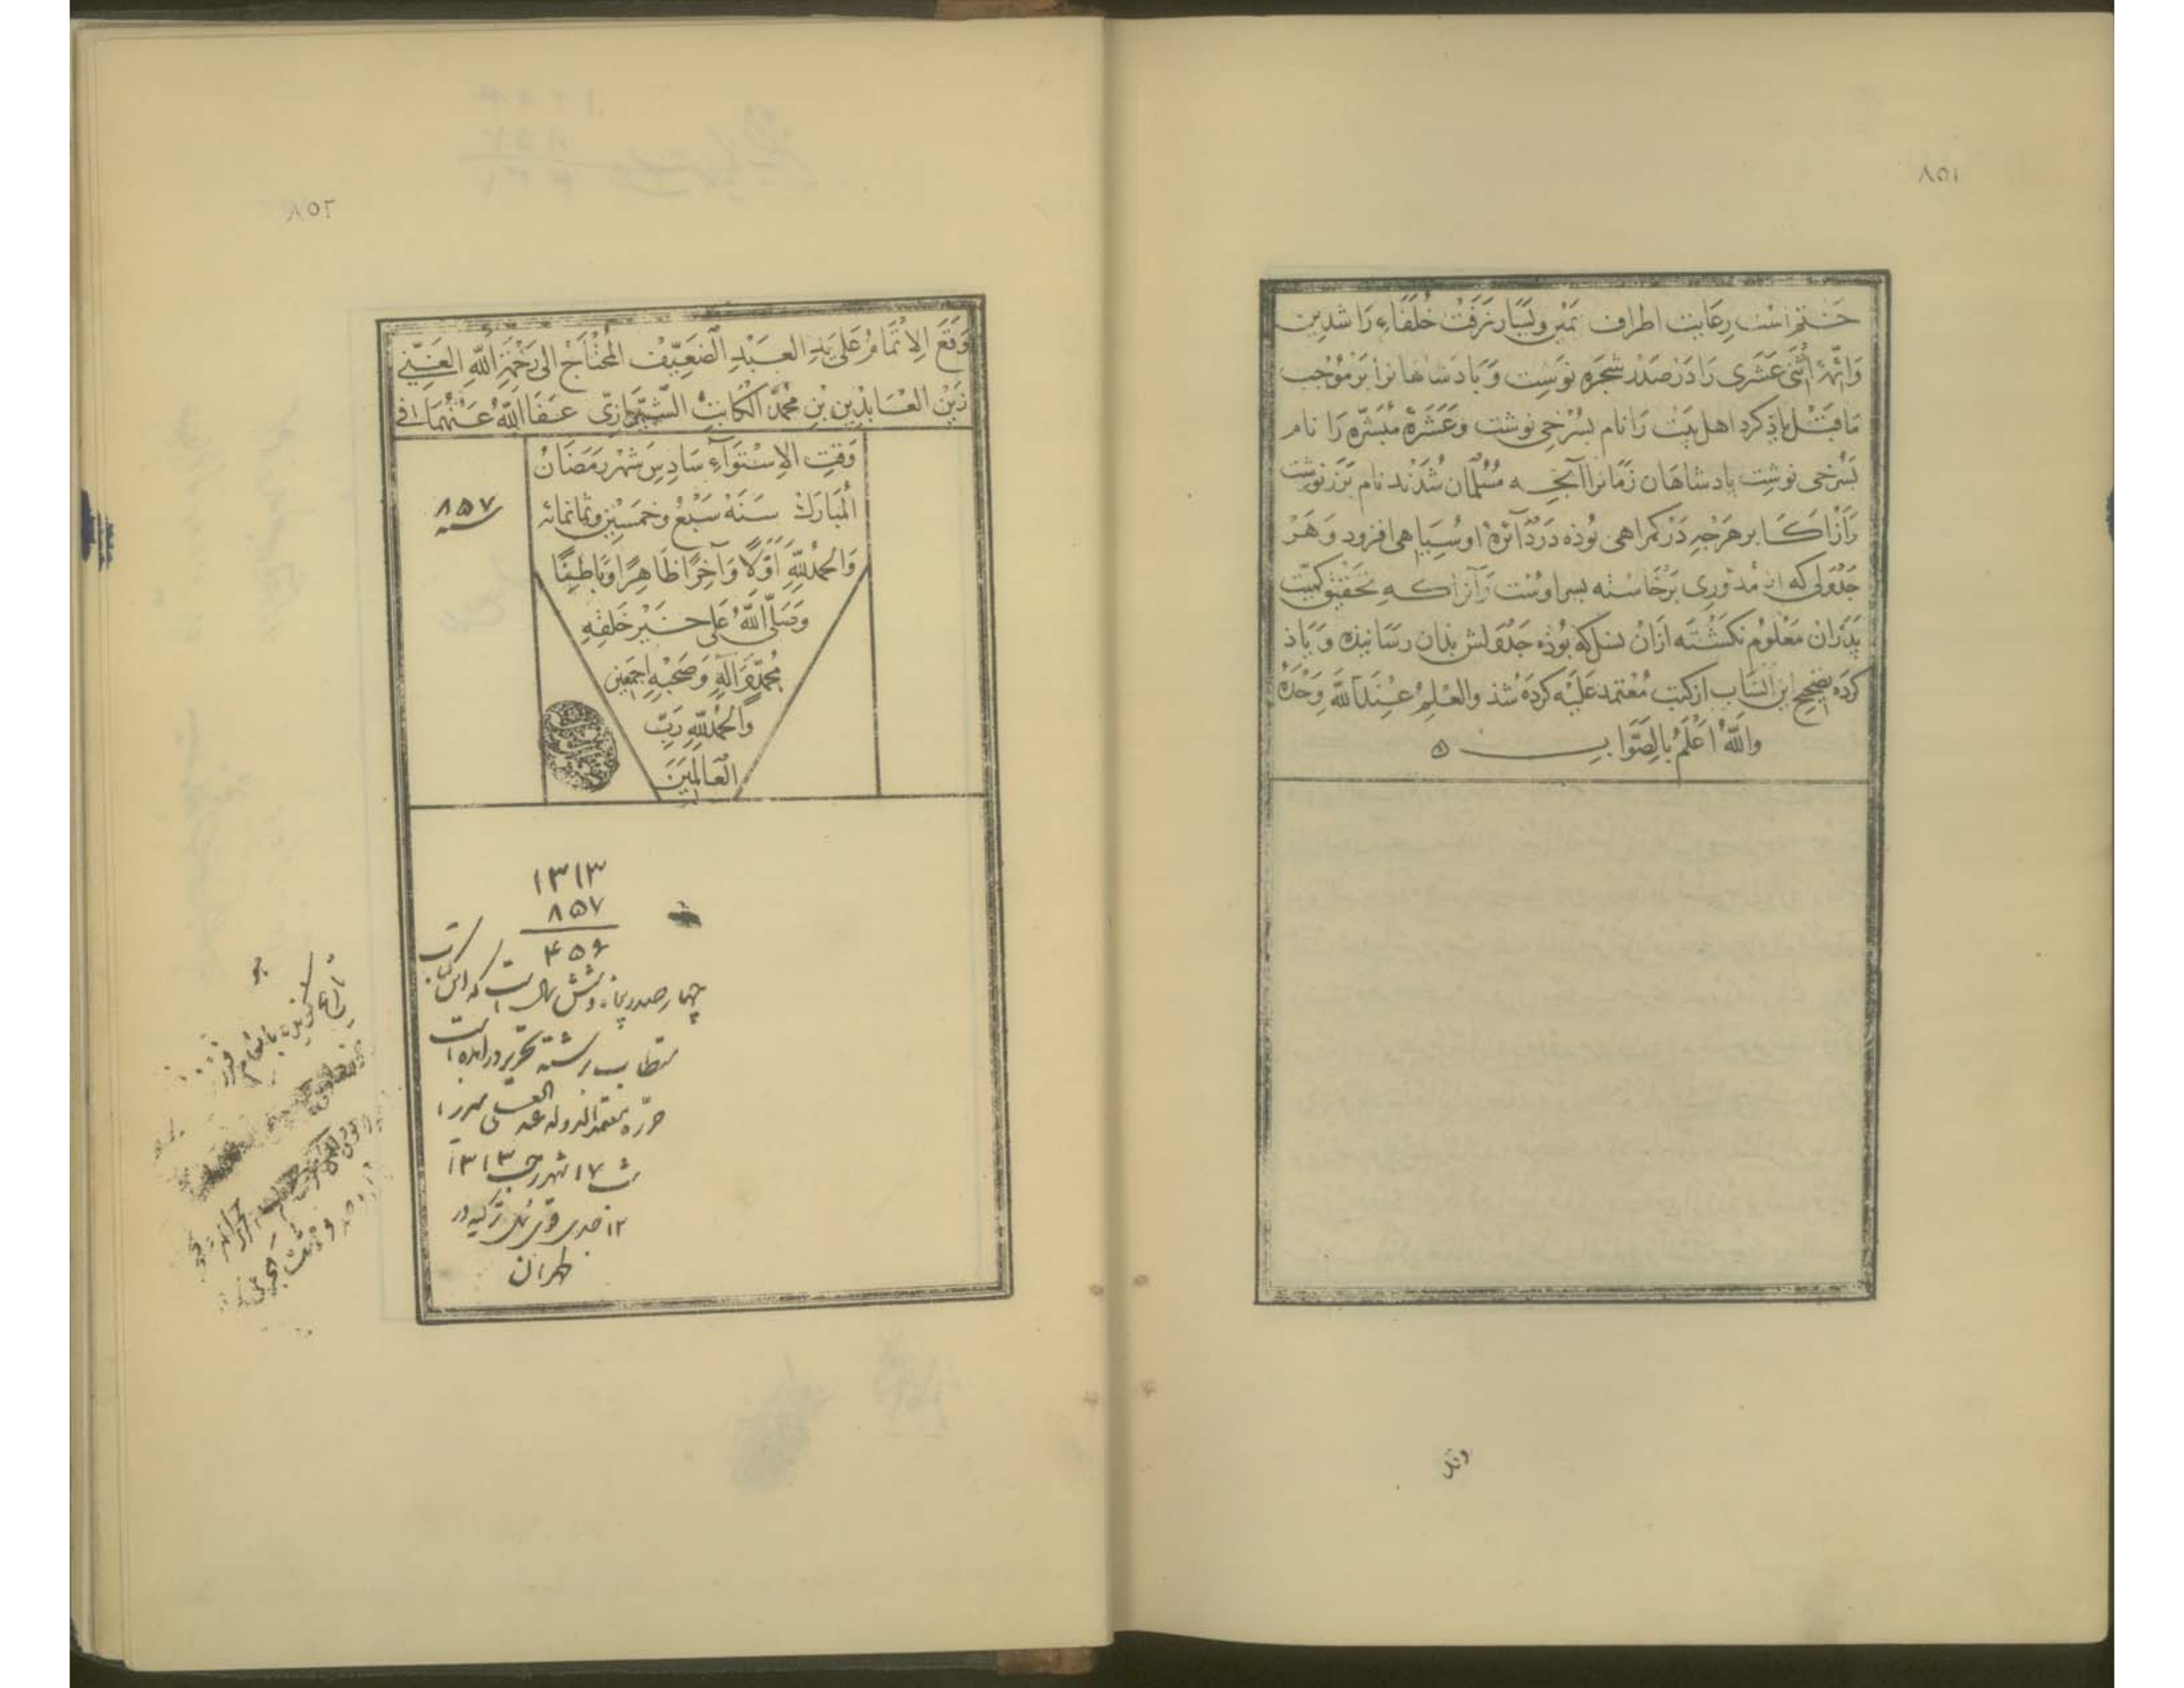 ٨٥١
ختم است رعایت اطراف یمین و یسار نرفت خلفاء راشدین
وائمّهٔ اثنی عشری را در صدر شجره نوشت و پادشاهانرا بر موجب
ماقبل یاذ کرد اهل بیت را نام بسرخی نوشت وعشرهٔ مبشّره را نام
بسرخی نوشت پادشاهان زمانرا آنچه مسلمان شدند نام بزر نوشت
واز اکابر هرچه در کمراهی بوذه در دائرهٔ او سیاهی افزود وهر
جدولی که از مدوری برخاسته پسر اوست وآنرا که تحقیق کمیّت
پدران معلوم نکشته ازان نسل که بوذه جدولش بدان رسانیده ویاذ
کرده تصحیح این انساب از کتب معتمد علیه کرده شذ والعلم عندالله وحده
والله اعلم بالصواب
٨٥٢
وقع الاتمام علی ید العبد الضعیف المحتاج الی رحمة الله الغنی
زین العابدین بن محمد الکاتب الشیرازی عفا الله عنهما فی
وقت الاستوآء سادس شهر رمضان
المبارك سنه سبع وخمسین وثمانمائه
سنه ۸۵۷
والحمدلله اولا وآخرا ظاهرا وباطنا
وصلی الله علی خیر خلقه
محمد وآله وصحبه اجمعین
والحمدلله رب
العالمین
۱۳۱۳
۸۵۷
۴۵۶
چهارصد و پنجاه و شش سال است که این کتاب
مستطاب برشته تحریر درآمده است
حرّره معتمدالدوله عبدالعلی میرزا
۱۷ شهر رجب ۱۳۱۳
۱۲ جدی قوی ئیل ترکیه در
طهران